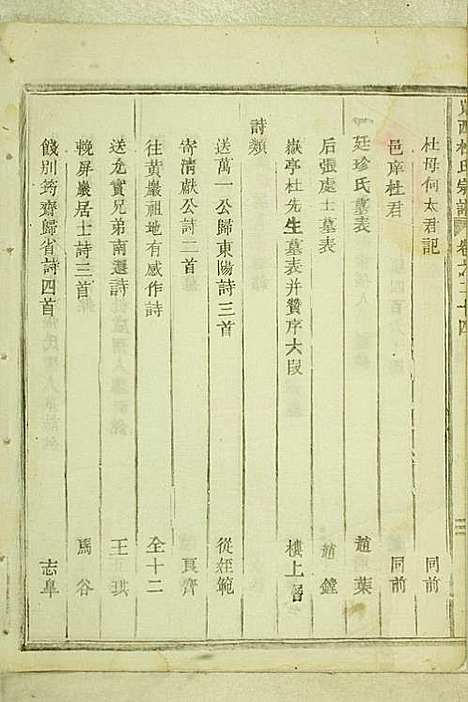 杜母何太君記 同前
邑庠杜君 同前
廷珍氏墓表 趙 葉
后張處士墓表 趙 鏜
嶽亭杜先生墓表并贊序大段 樓上層
詩類
送萬一公歸東陽詩三首 從姪範
寄清獻公詩二首 良齊
往黃巖祖地有感作詩 全十二
送允實兄弟南還詩 王 琪
輓屏巖居士詩三首 馬 谷
餞別筠齋歸省詩四首 志阜